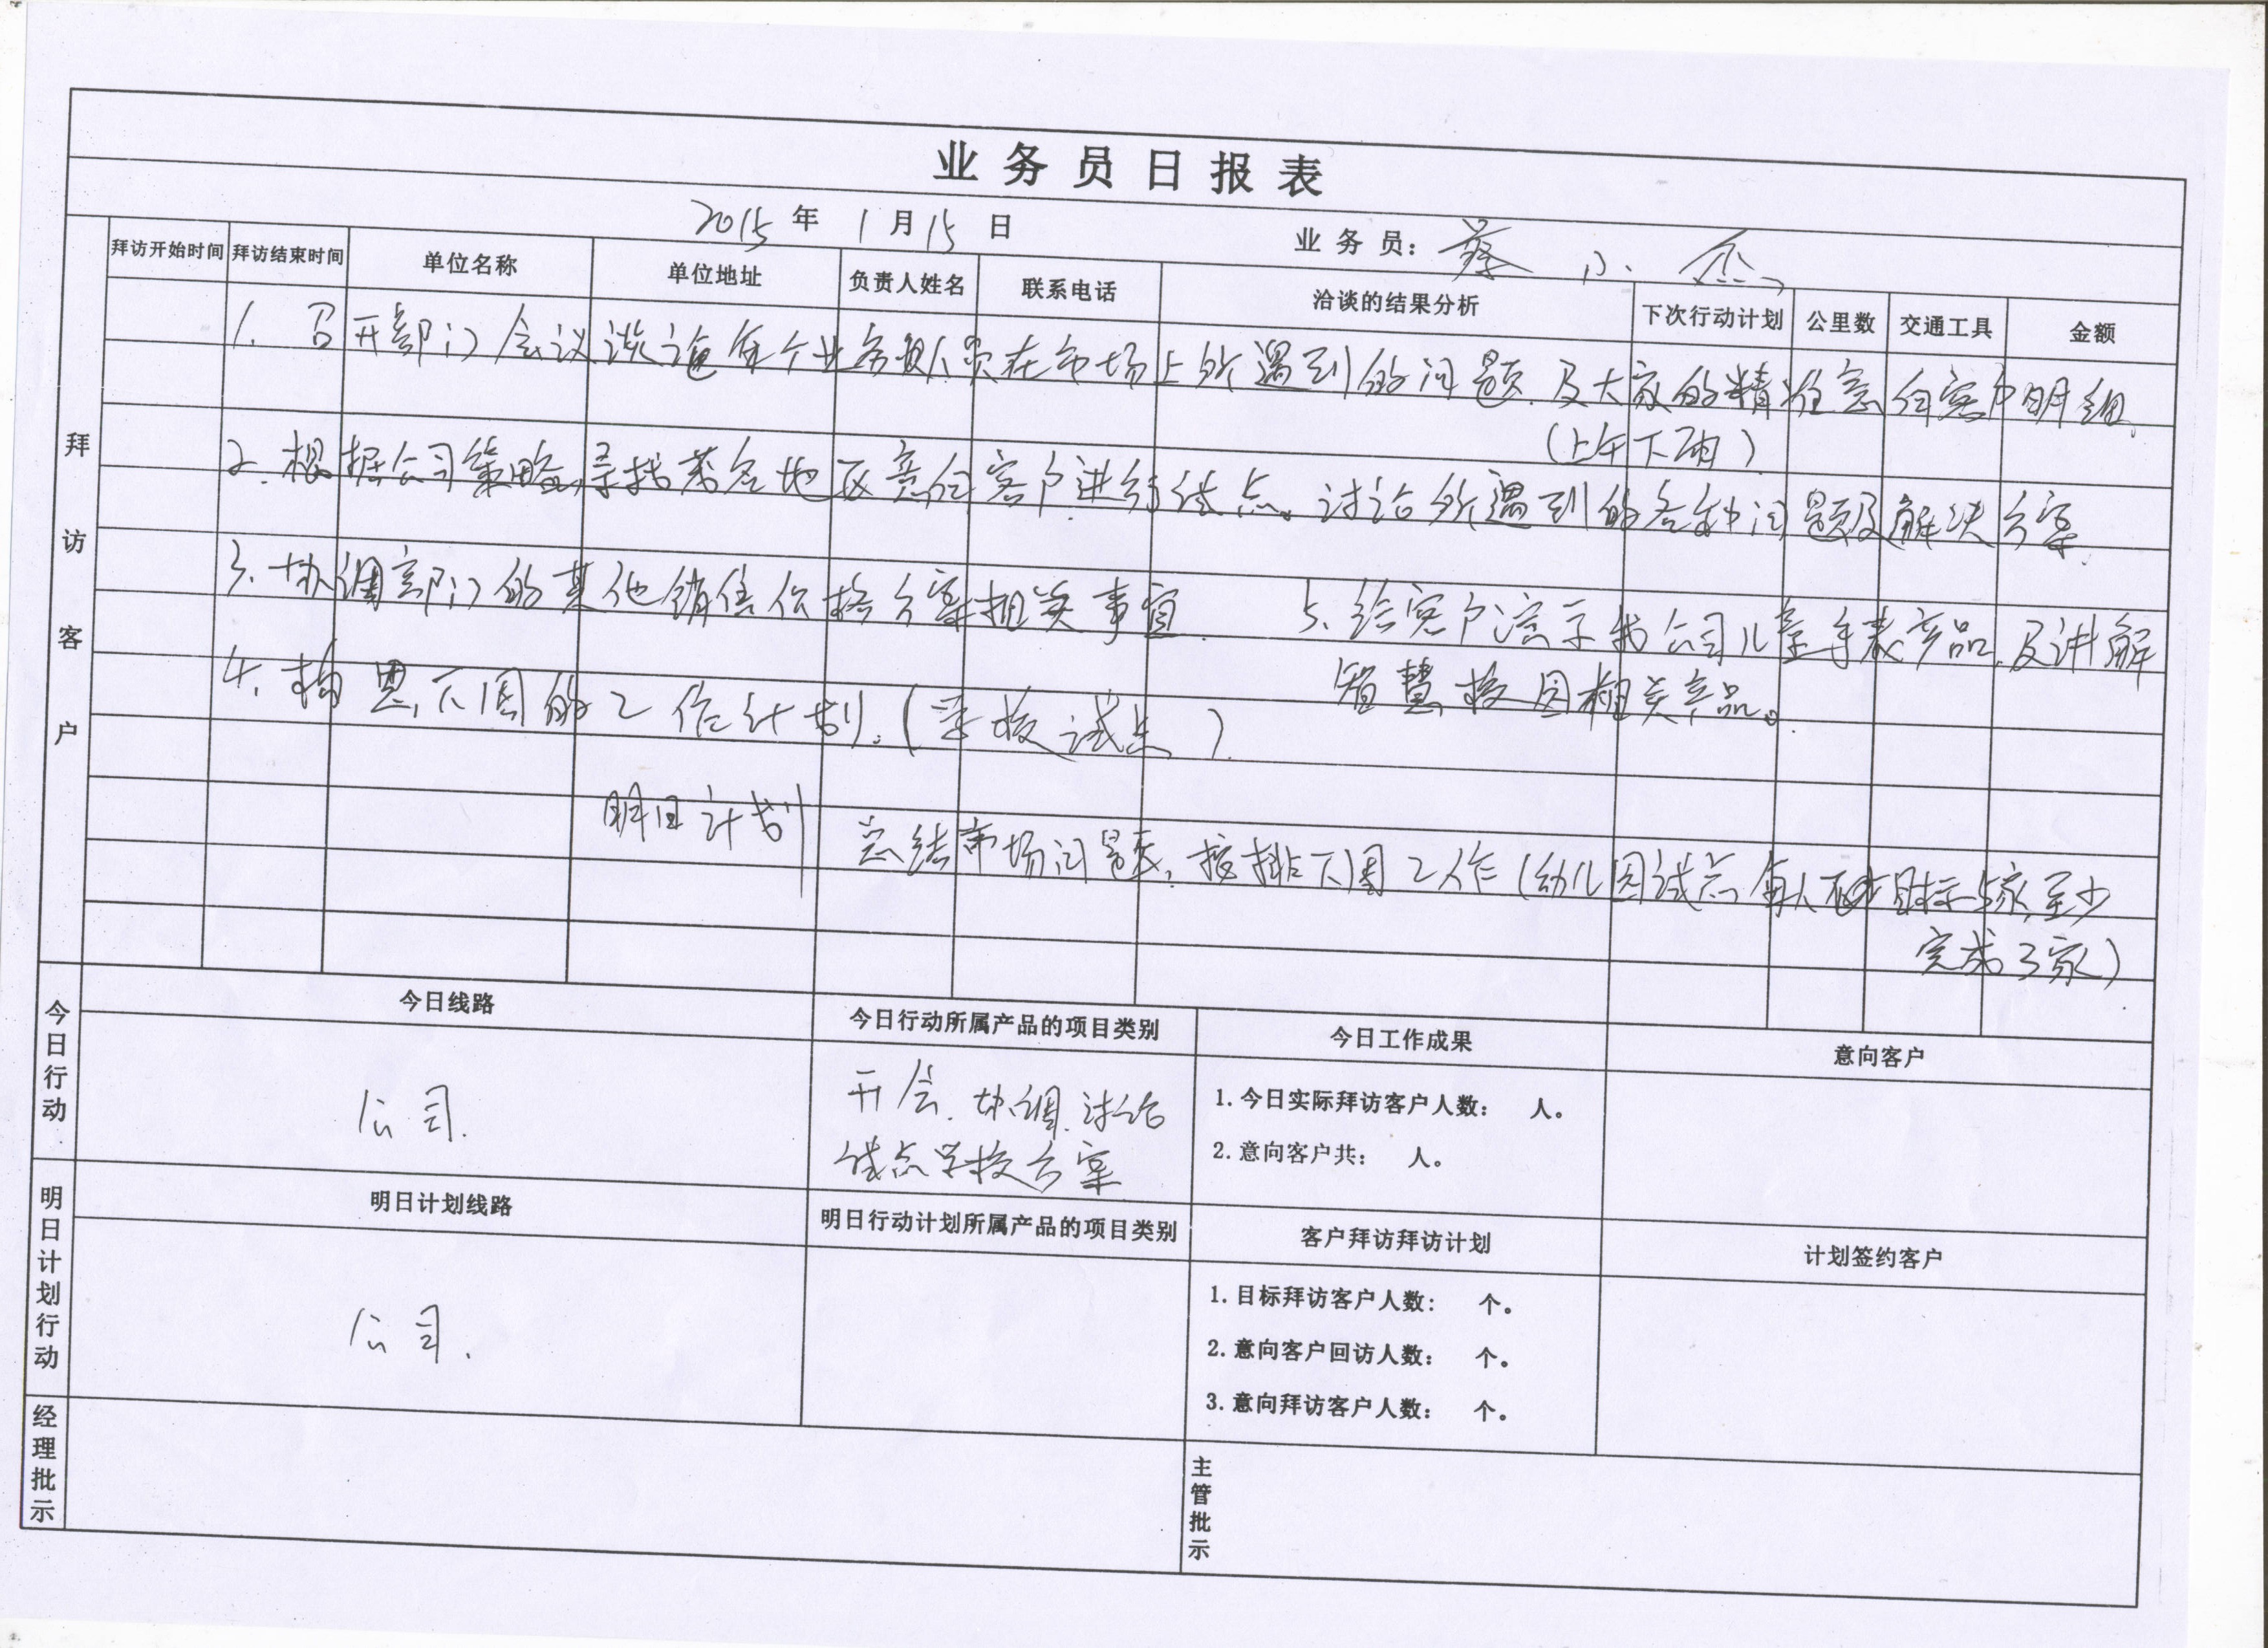 业务员日报表
2015年1月15日 业务员：蔡小杰
拜访客户
拜访开始时间 拜访结束时间 单位名称 单位地址 负责人姓名 联系电话 洽谈的结果分析 下次行动计划 公里数 交通工具 金额
1. 召开部门会议谈论每个业务人员在市场上所遇到的问题.及大家的精准意向客户明细.
(上午下雨)
2.根据公司策略,寻找各地区意向客户进行试点。讨论所遇到的各种问题及解决方案.
3.协调部门的其他销售价格方案相关事宜. 5.给客户演示我公司儿童手表产品.及讲解
智慧校园相关产品。
4.构思下周的工作计划.(学校试点)
明日计划 总结市场问题,按排下周工作(幼儿园试点每人目标5家,至少
完成3家)
今日行动
今日线路 今日行动所属产品的项目类别 今日工作成果 意向客户
公司. 开会.协调.讨论
试点学校方案
1.今日实际拜访客户人数： 人。
2.意向客户共： 人。
明日计划行动
明日计划线路 明日行动计划所属产品的项目类别 客户拜访拜访计划 计划签约客户
公司.
1.目标拜访客户人数： 个。
2.意向客户回访人数： 个。
3.意向拜访客户人数： 个。
经理批示
主管批示